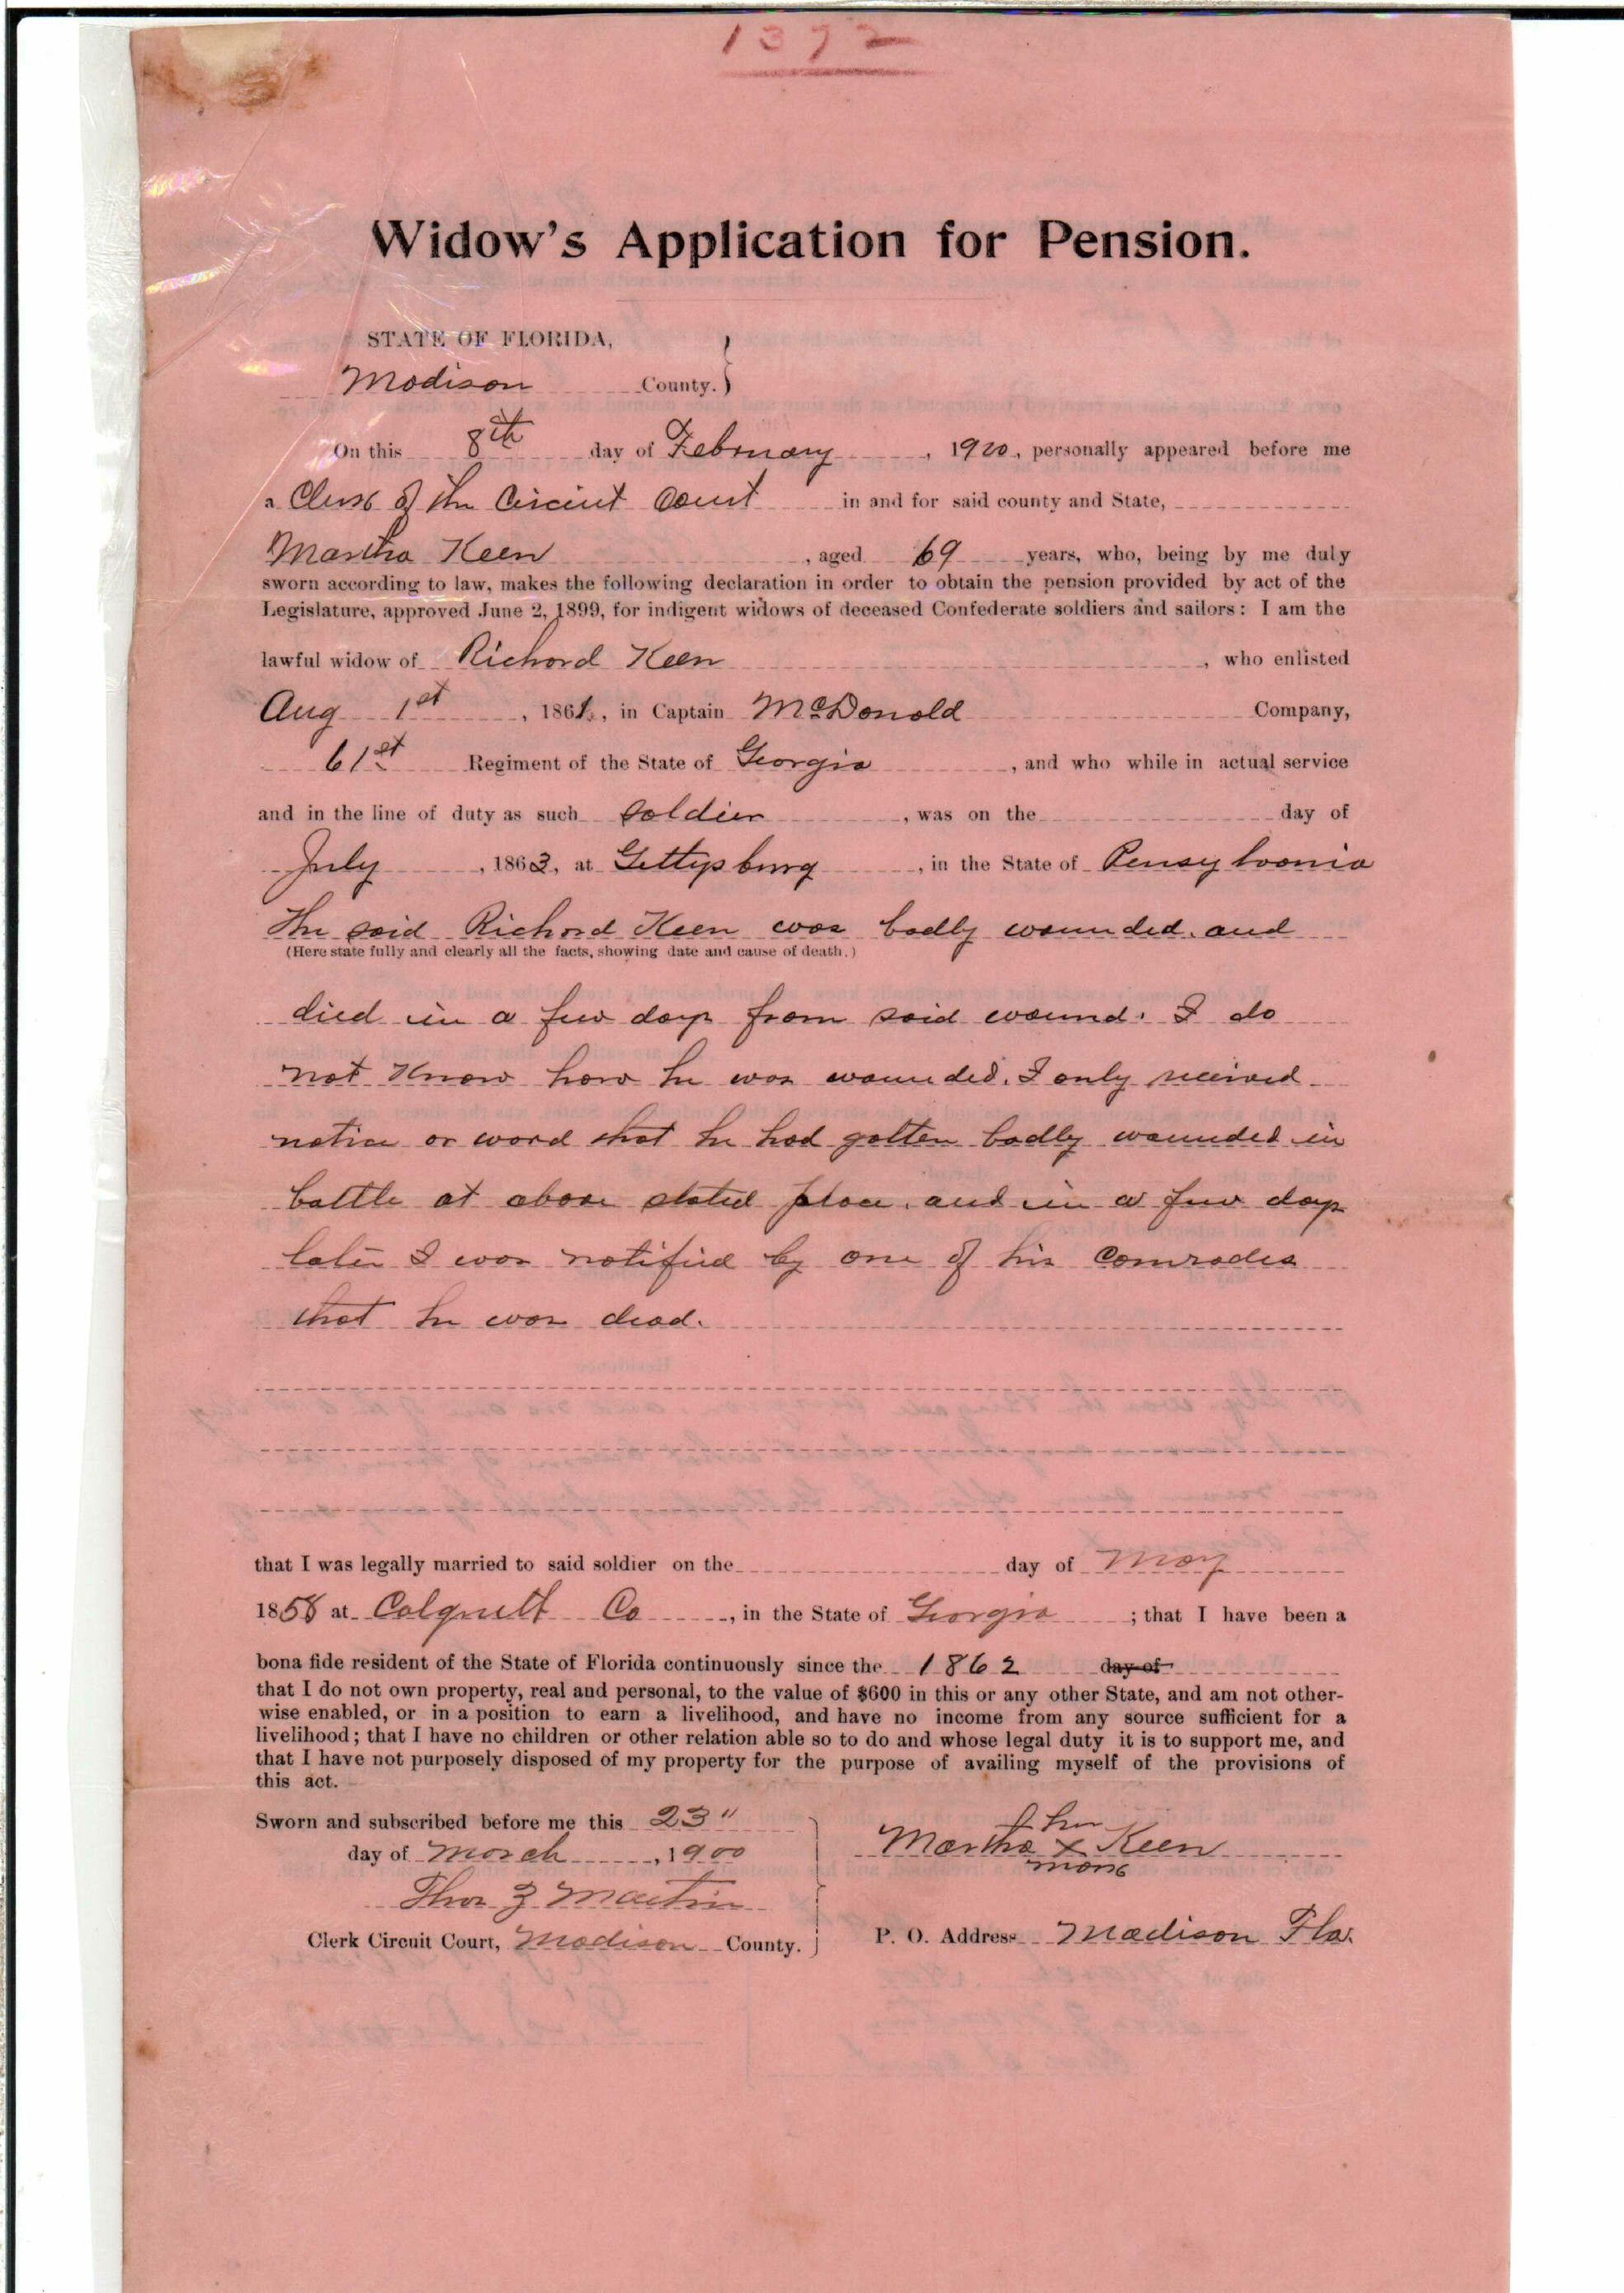 1372
Widow's Application for Pension.
STATE OF FLORIDA,
Madison County.
On this 8th day of February, 1900, personally appeared before me
a Clerk of the Circuit Court in and for said county and State,
Martha Keen, aged 69 years, who, being by me duly
sworn according to law, makes the following declaration in order to obtain the pension provided by act of the
Legislature, approved June 2, 1899, for indigent widows of deceased Confederate soldiers and sailors: I am the
lawful widow of Richard Keen, who enlisted
Aug 1st, 1861, in Captain McDonald Company,
61st Regiment of the State of Georgia, and who while in actual service
and in the line of duty as such soldier, was on the day of
July, 1863, at Gettysburg, in the State of Pensylvania
The said Richard Keen was badly wounded and
(Here state fully and clearly all the facts, showing date and cause of death.)
died in a few days from said wound. I do
not Know how he was wounded. I only received
notice or word that he had gotten badly wounded in
battle at above stated place, and in a few days
later I was notified by one of his Comrades
that he was dead.
that I was legally married to said soldier on the day of May
1858 at Colquitt Co, in the State of Georgia; that I have been a
bona fide resident of the State of Florida continuously since the 1862 day of
that I do not own property, real and personal, to the value of $600 in this or any other State, and am not other-
wise enabled, or in a position to earn a livelihood, and have no income from any source sufficient for a
livelihood; that I have no children or other relation able so to do and whose legal duty it is to support me, and
that I have not purposely disposed of my property for the purpose of availing myself of the provisions of
this act.
Sworn and subscribed before me this 23"
day of March, 1900
Thos Z Martin
Clerk Circuit Court, Madison County.
her
Martha x Keen
mark
P. O. Address Madison Fla.